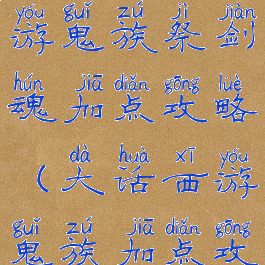 yóu guǐ zú jì jiàn
游鬼族祭剑
hún jiā diǎn gōng lüè
魂加点攻略
dà huà xī yóu
（大话西游
guǐ zú jiā diǎn gōng
鬼族加点攻